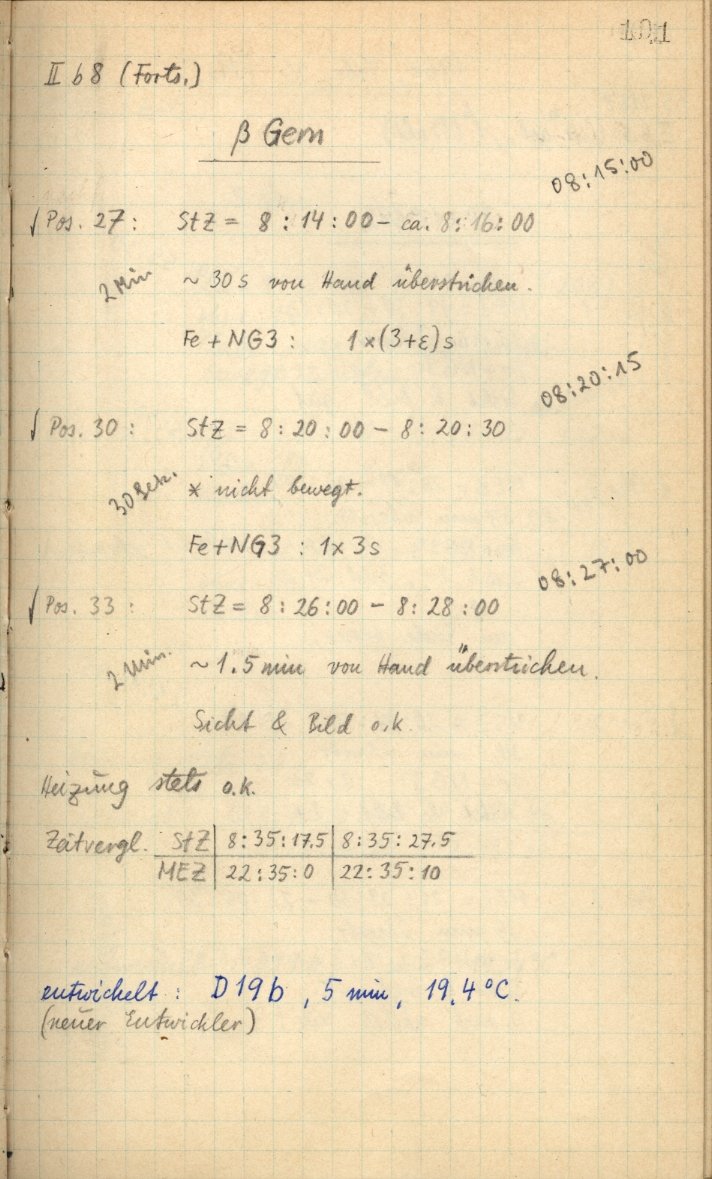 101
II b8 (Forts.)
β Gem
08:15:00
√ Pos. 27: StZ = 8:14:00 – ca. 8:16:00
2 Min ~ 30 s von Hand überstrichen.
Fe + NG3 : 1 x (3+ε) s
08:20:15
√ Pos. 30 : StZ = 8:20:00 – 8:20:30
30 Sek. * nicht bewegt.
Fe + NG3 : 1 x 3 s
08:27:00
√ Pos. 33 : StZ = 8:26:00 – 8:28:00
2 Min. ~ 1.5 min von Hand überstrichen.
Sicht & Bild o.k.
Heizung stets o.k.
Zeitvergl. StZ | 8:35:17.5 | 8:35:27.5
MEZ | 22:35:0 | 22:35:10
entwickelt : D19b , 5 min, 19.4°C.
(neuer Entwickler)